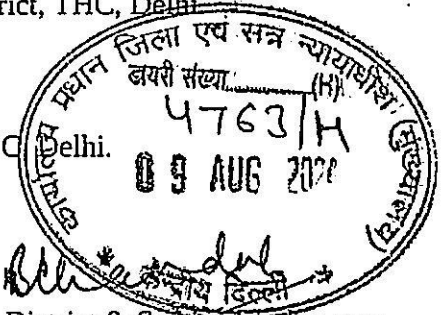 District, THC, Delhi.
कार्यालय प्रधान जिला एवं सत्र न्यायाधीश (मुख्यालय)
डायरी संख्या (H)
4763/H
Delhi.
09 AUG
केन्द्रीय दिल्ली
District &